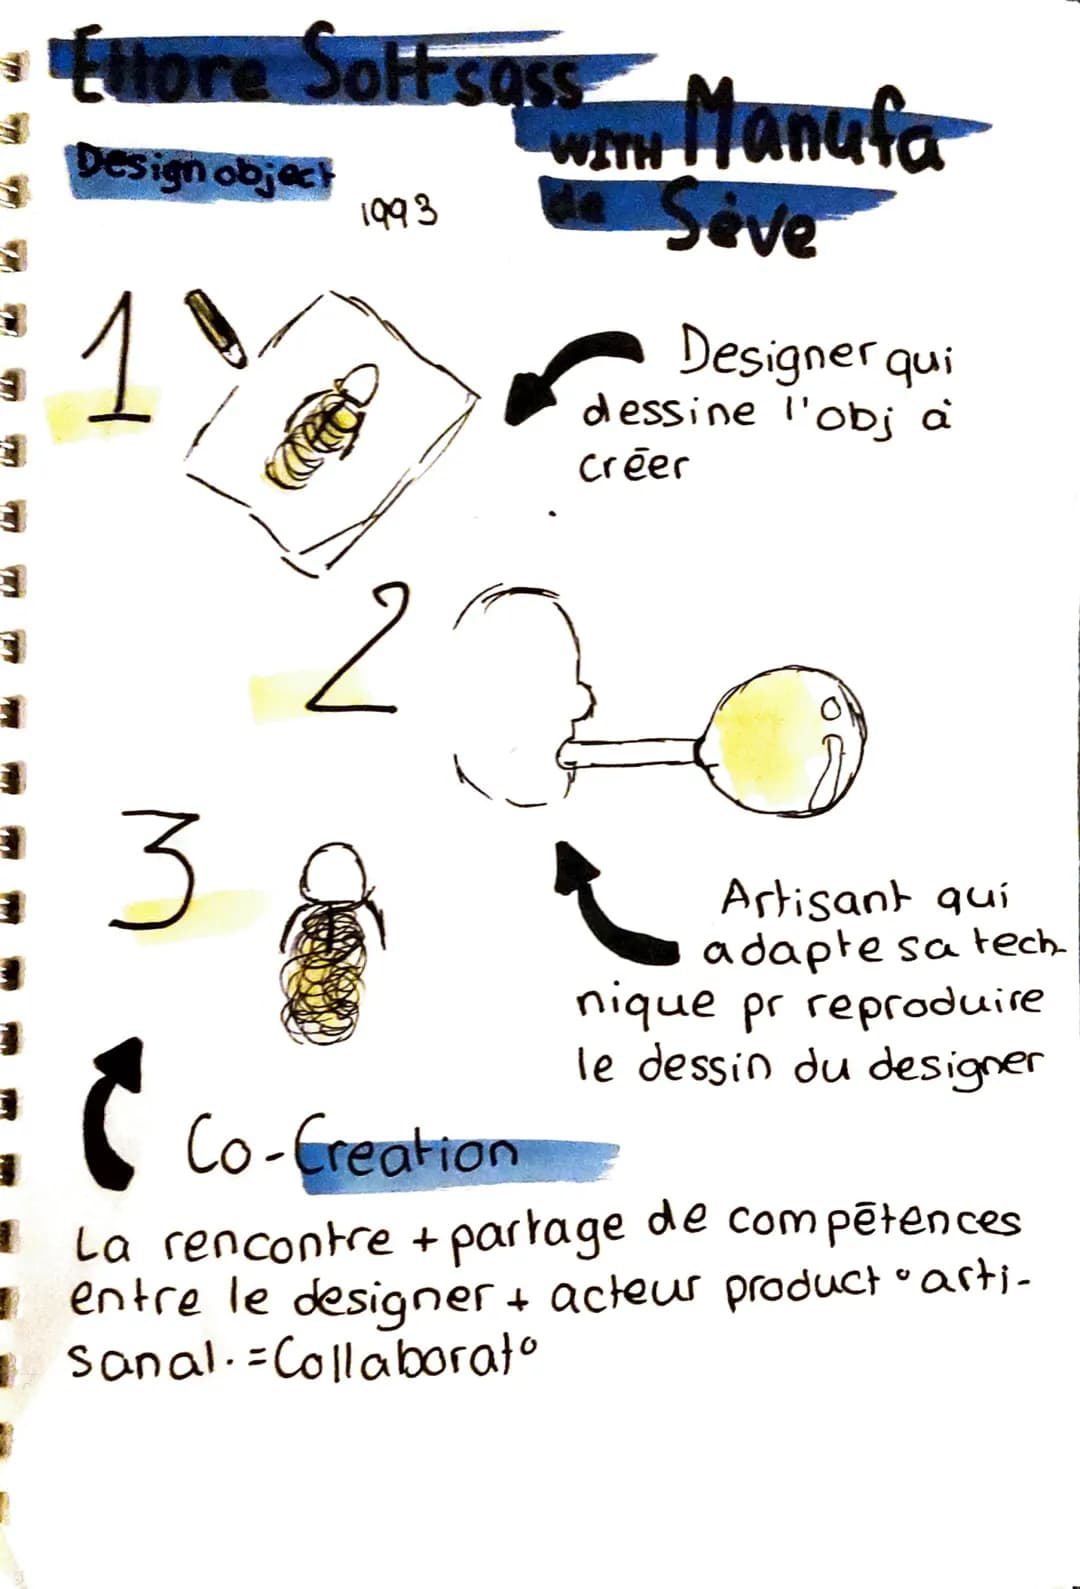 Ettore Sottsass
WITH Manufa
de Sève
Design object
1993
1
Designer qui
dessine l'obj à
créer
2
3
Artisant qui
adapte sa tech-
nique pr reproduire
le dessin du designer
Co-Creation
La rencontre + partage de compētences
entre le designer + acteur product° arti-
sanal. = Collaborat°